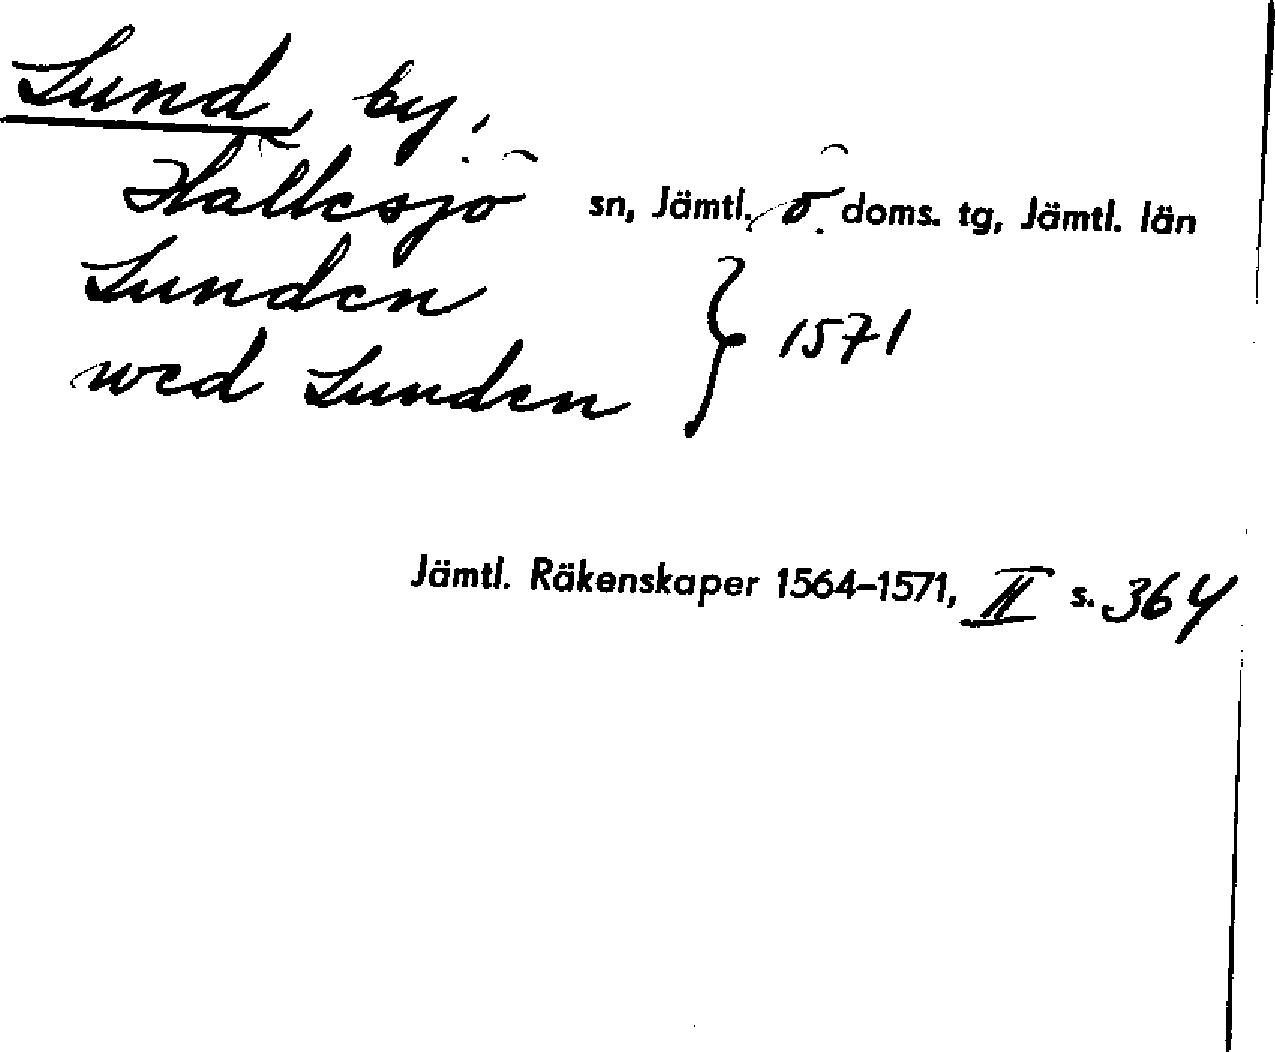 Lund, by,
Hällesjö sn, Jämtl. ö. doms. tg, Jämtl. län
Lunden
wed Lunden } 1571
Jämtl. Räkenskaper 1564–1571, II s. 364